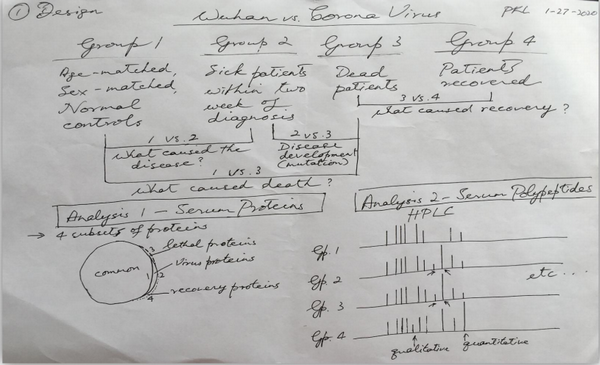 ① Design
Wuhan vs. Corona Virus
PKL 1-27-2020
Group 1
Age-matched,
Sex-matched,
Normal
controls
Group 2
Sick patients
within two
week of
diagnosis
Group 3
Dead
patients
Group 4
Patients
recovered
3 vs. 4
What caused recovery?
1 vs. 2
What caused the
disease?
2 vs. 3
Disease
development
(mutation)
1 vs 3
What caused death?
Analysis 1 - Serum Proteins
→ 4 subsets of proteins
common
3 lethal proteins
virus proteins
1 2
4 recovery proteins
Analysis 2 - Serum Polypeptides
HPLC
Gp. 1
Gp. 2
etc...
Gp. 3
Gp. 4
qualitative
quantitative